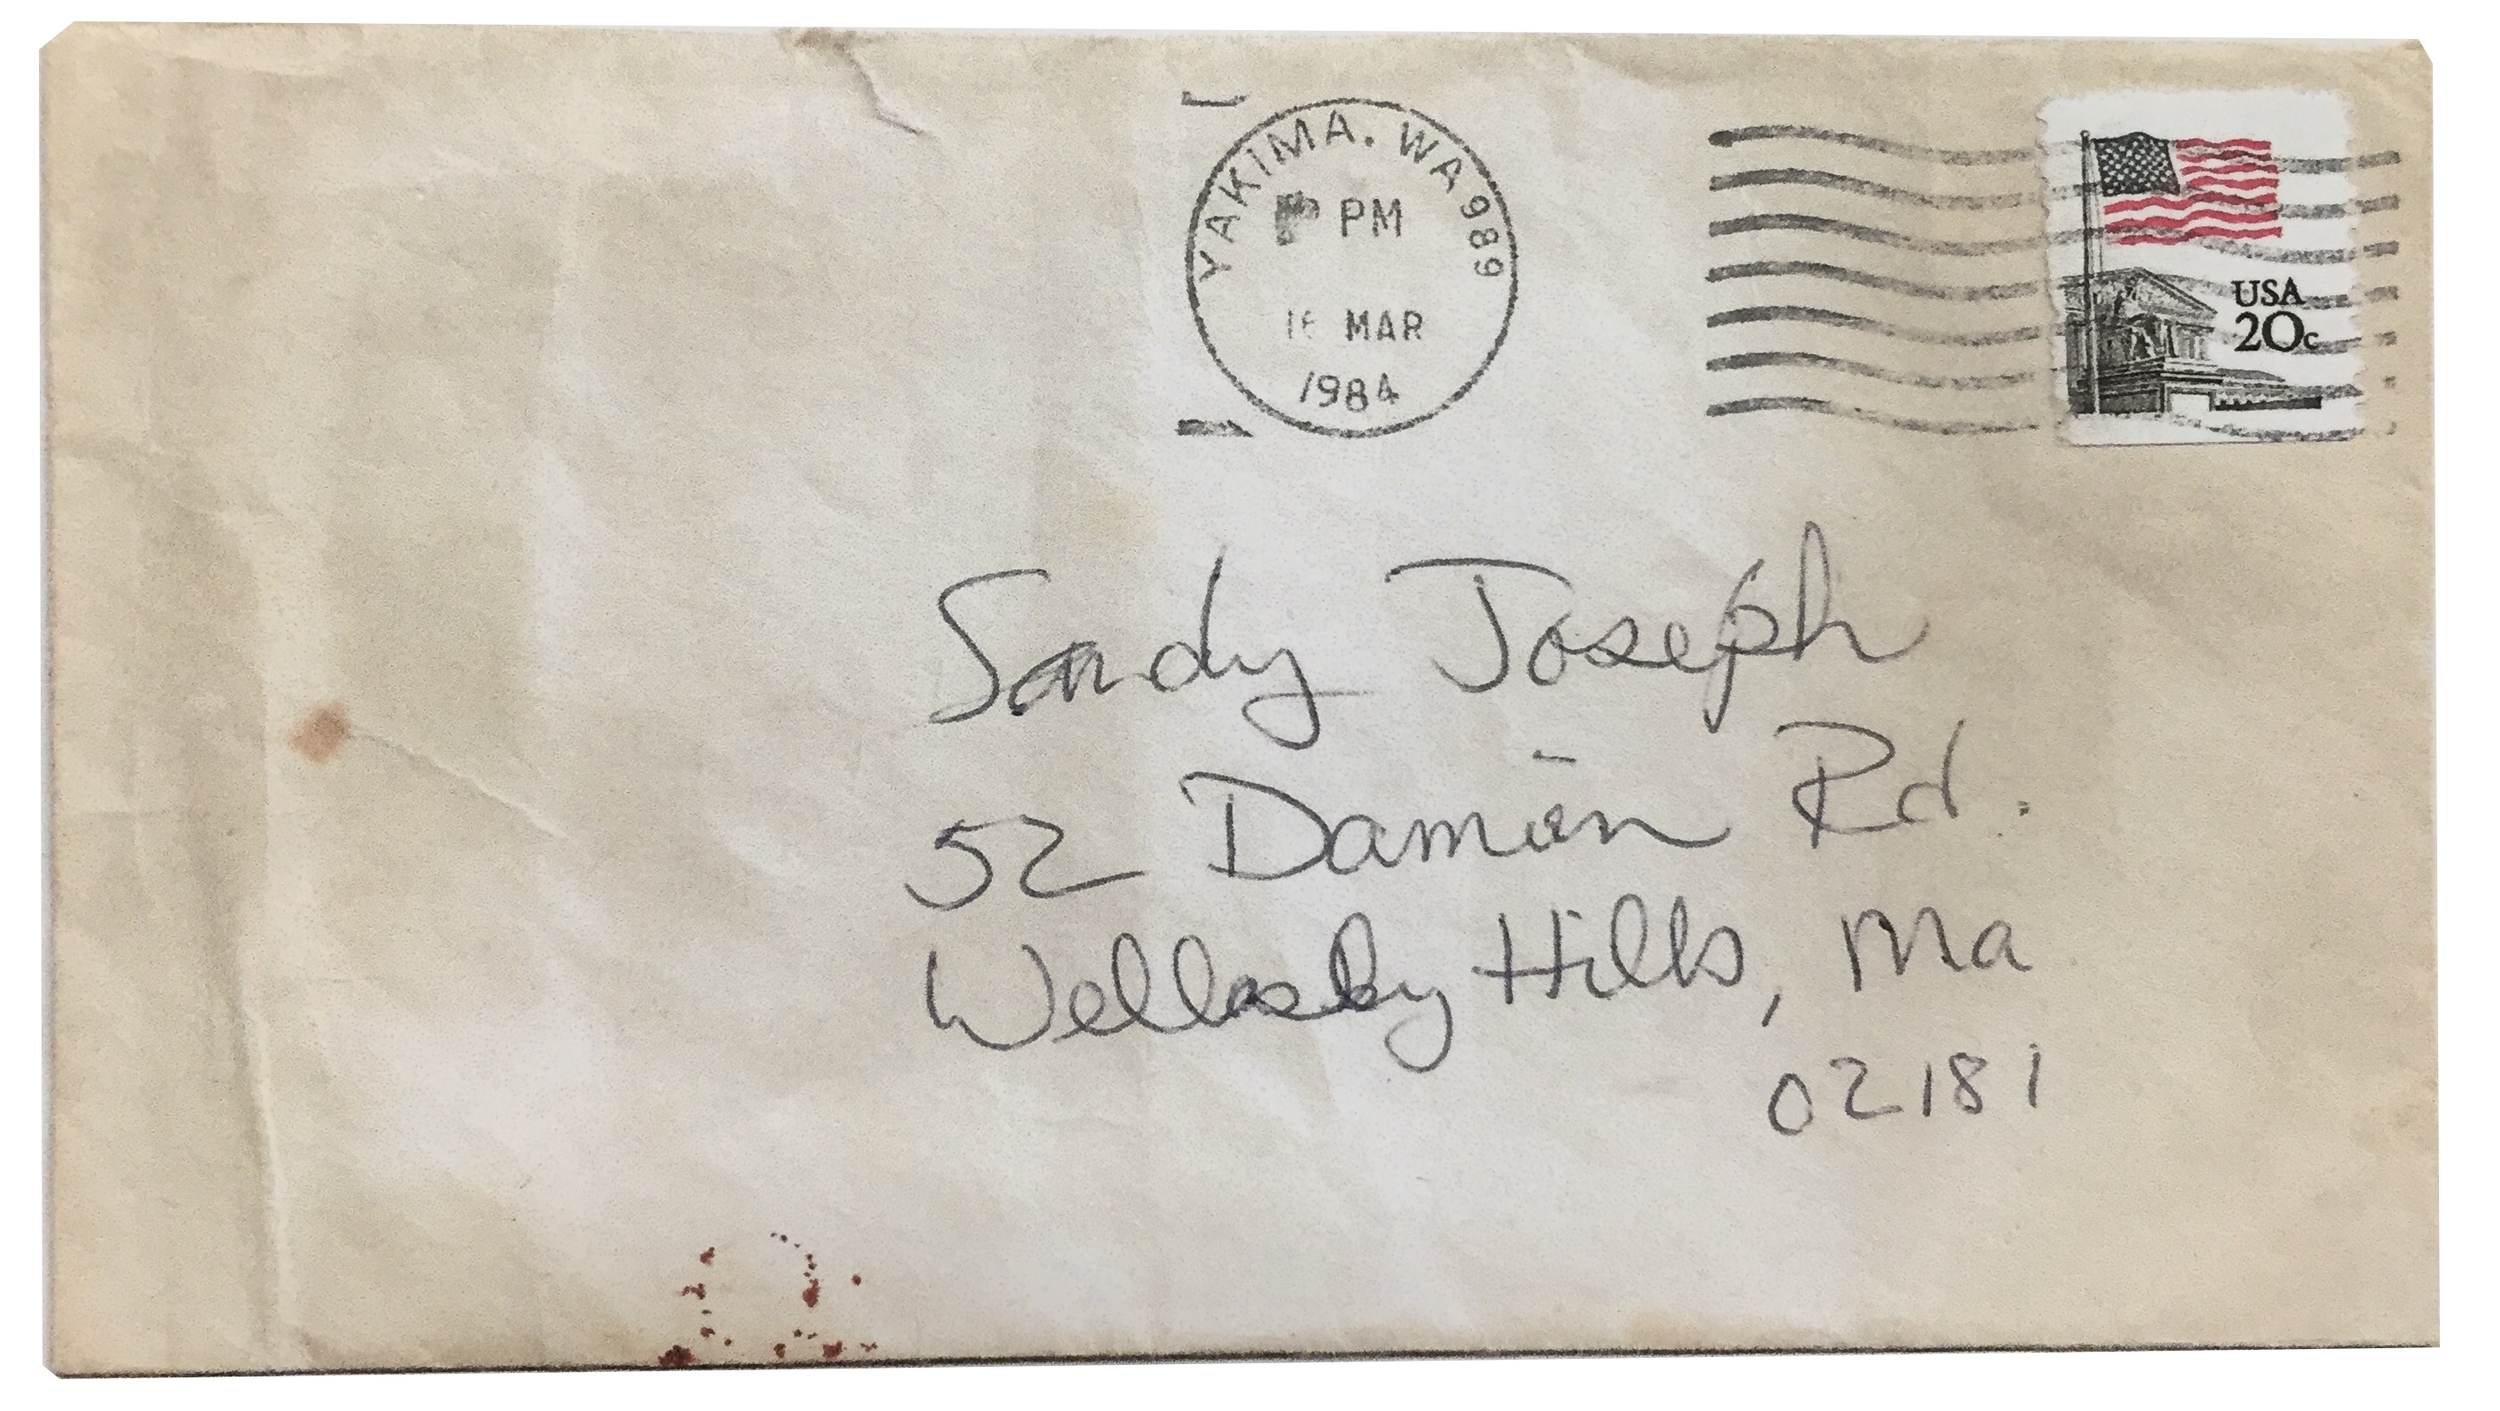 YAKIMA, WA 989
PM
MAR
1984
USA
20c
Sandy Joseph
52 Damien Rd.
Wellesley Hills, Ma
02181